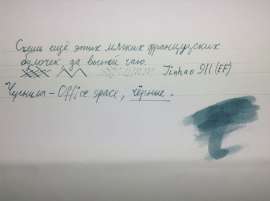 Съешь ещё этих мягких французских
булочек, за выпей чаю.
Jinhao 911 (EF)
Чернила – Office space, чёрные.